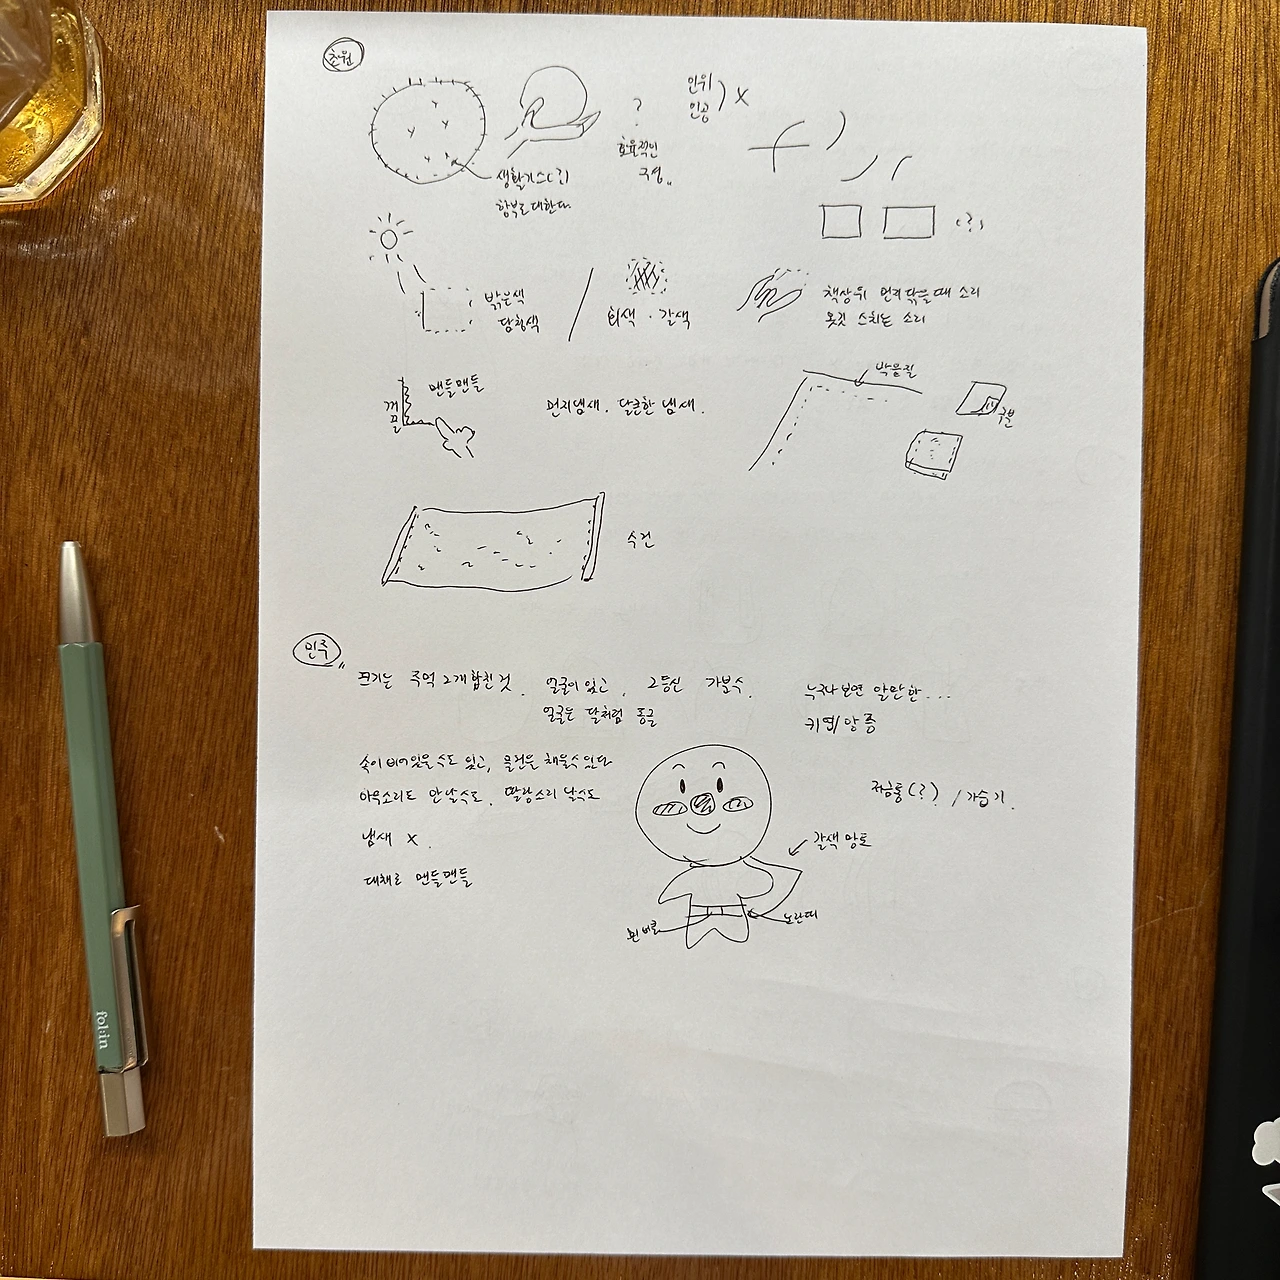 초원
인위
인공 ) X
?
효율적인
생활기스(?)
함부로 대한다.
(?)
밝은색
단형색
회색 · 갈색
책상위 먼지 닦을때 소리
옷깃 스치는 소리
맨들맨들
꺼끌
먼지냄새. 달큰한 냄새.
박음질
수건
민주
크기는 주먹 2개 합친 것.
얼굴이 있고, 2등신 가분수.
얼굴은 달처럼 둥글
누구나 보면 알만한...
키링/앙증
속이 비어있을 수도 있고, 물건을 채울 수 있다
아무소리도 안 날수도. 딸랑소리 날수도
냄새 X.
대체로 맨들맨들
저금통(?) / 가습기.
갈색 망토
흰 버클
노란띠
fol:in